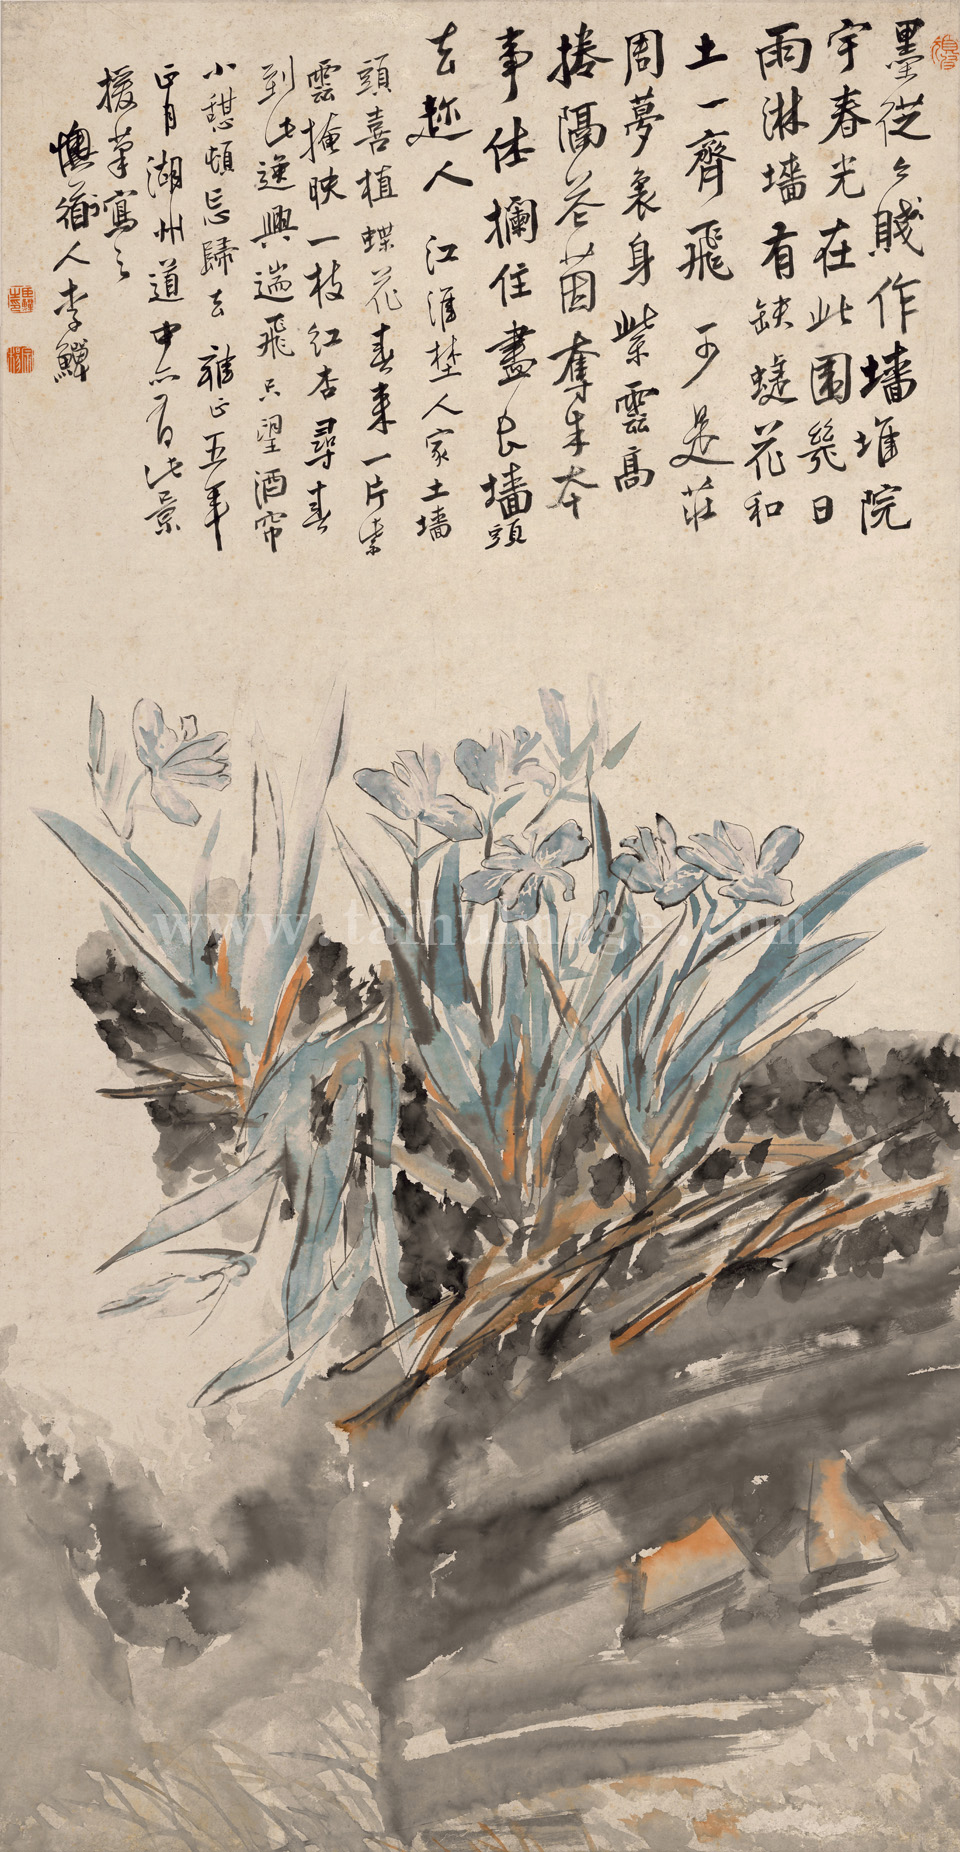 墨從今賤作墻堆院
宇春光在此圍幾日
雨淋墻有缺蝶花和
土一齊飛 可是莊
周夢裏身紫雲高
捲隔花茵奪朱本
事休攔住盡長墻頭
去趂人 江淮埜人家土墻
頭喜植蝶花春來一片紫
雲掩映一枝紅杏尋春
到此逸興遄飛只望酒帘
小憩頓忘歸去 雍正五年
正月湖州道中亦有此景
援筆寫之
懊道人李鱓
www.taihuimage.com